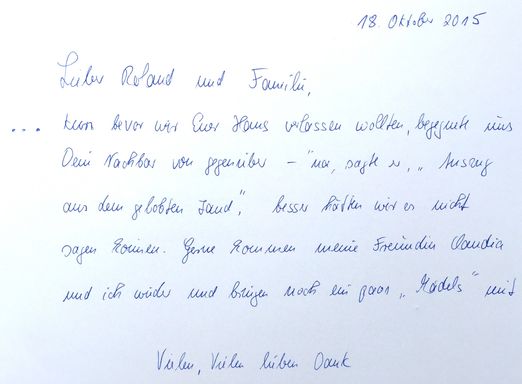 18. Oktober 2015
Lieber Roland und Familie,
... kurz bevor wir Euer Haus verlassen wollten, begegnete uns
Dein Nachbar von gegenüber – "na, sagte er, „Auszug
aus dem gelobten Land", besser hätten wir es nicht
sagen können. Gerne kommen meine Freundin Claudia
und ich wieder und bringen noch ein paar „Mädels" mit
Vielen, Vielen lieben Dank